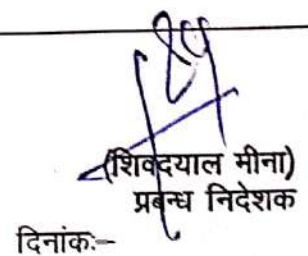 (शिवदयाल मीना)
प्रबन्ध निदेशक
दिनांकः-